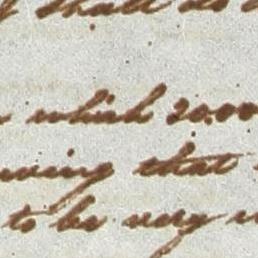 shall do
which 20.00
wing that
to be very